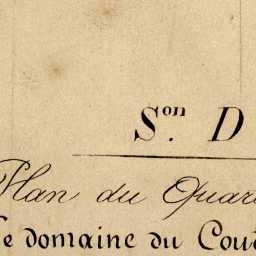 Son. D
Plan du Quar
e domaine du Cou